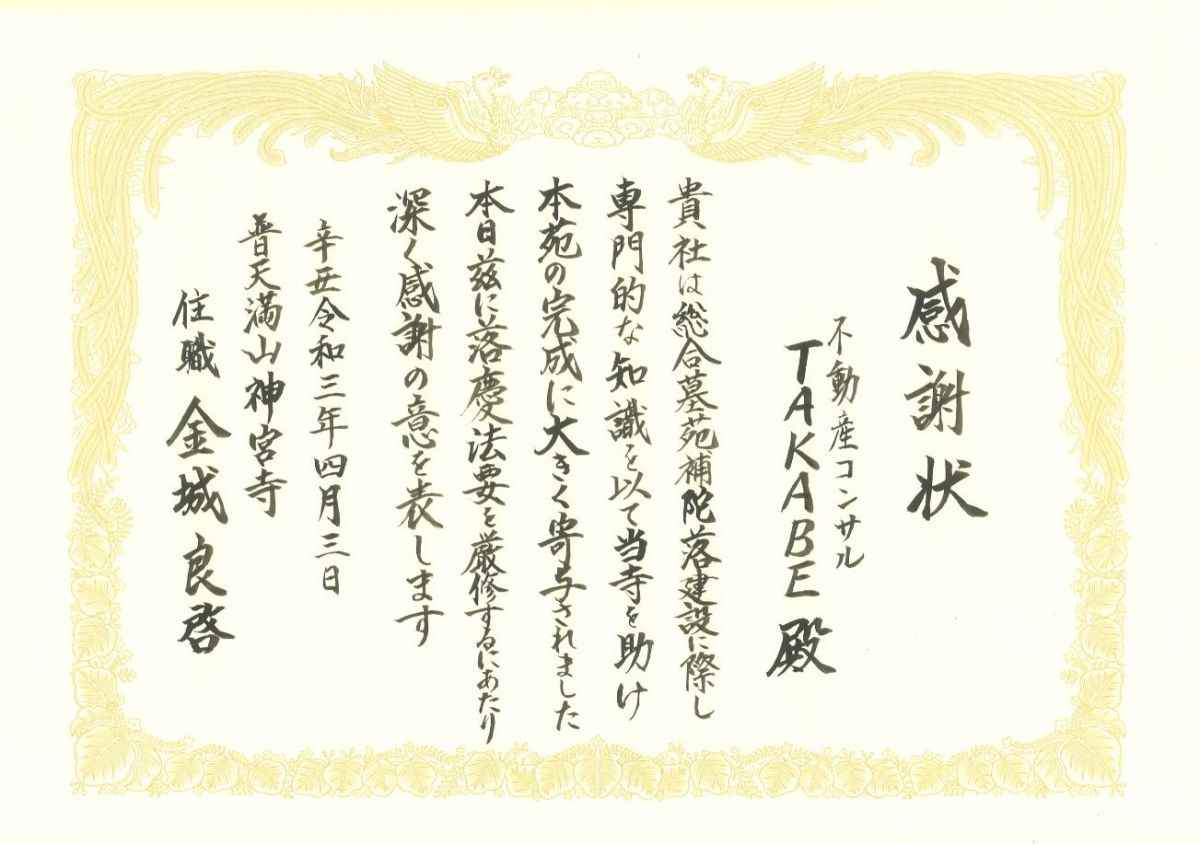 感謝状
不動産コンサル
TAKABE殿
貴社は総合墓苑補陀落建設に際し
専門的な知識を以て当寺を助け
本苑の完成に大きく寄与されました
本日茲に落慶法要を厳修するにあたり
深く感謝の意を表します
辛丑令和三年四月三日
普天満山神宮寺
住職 金城良啓